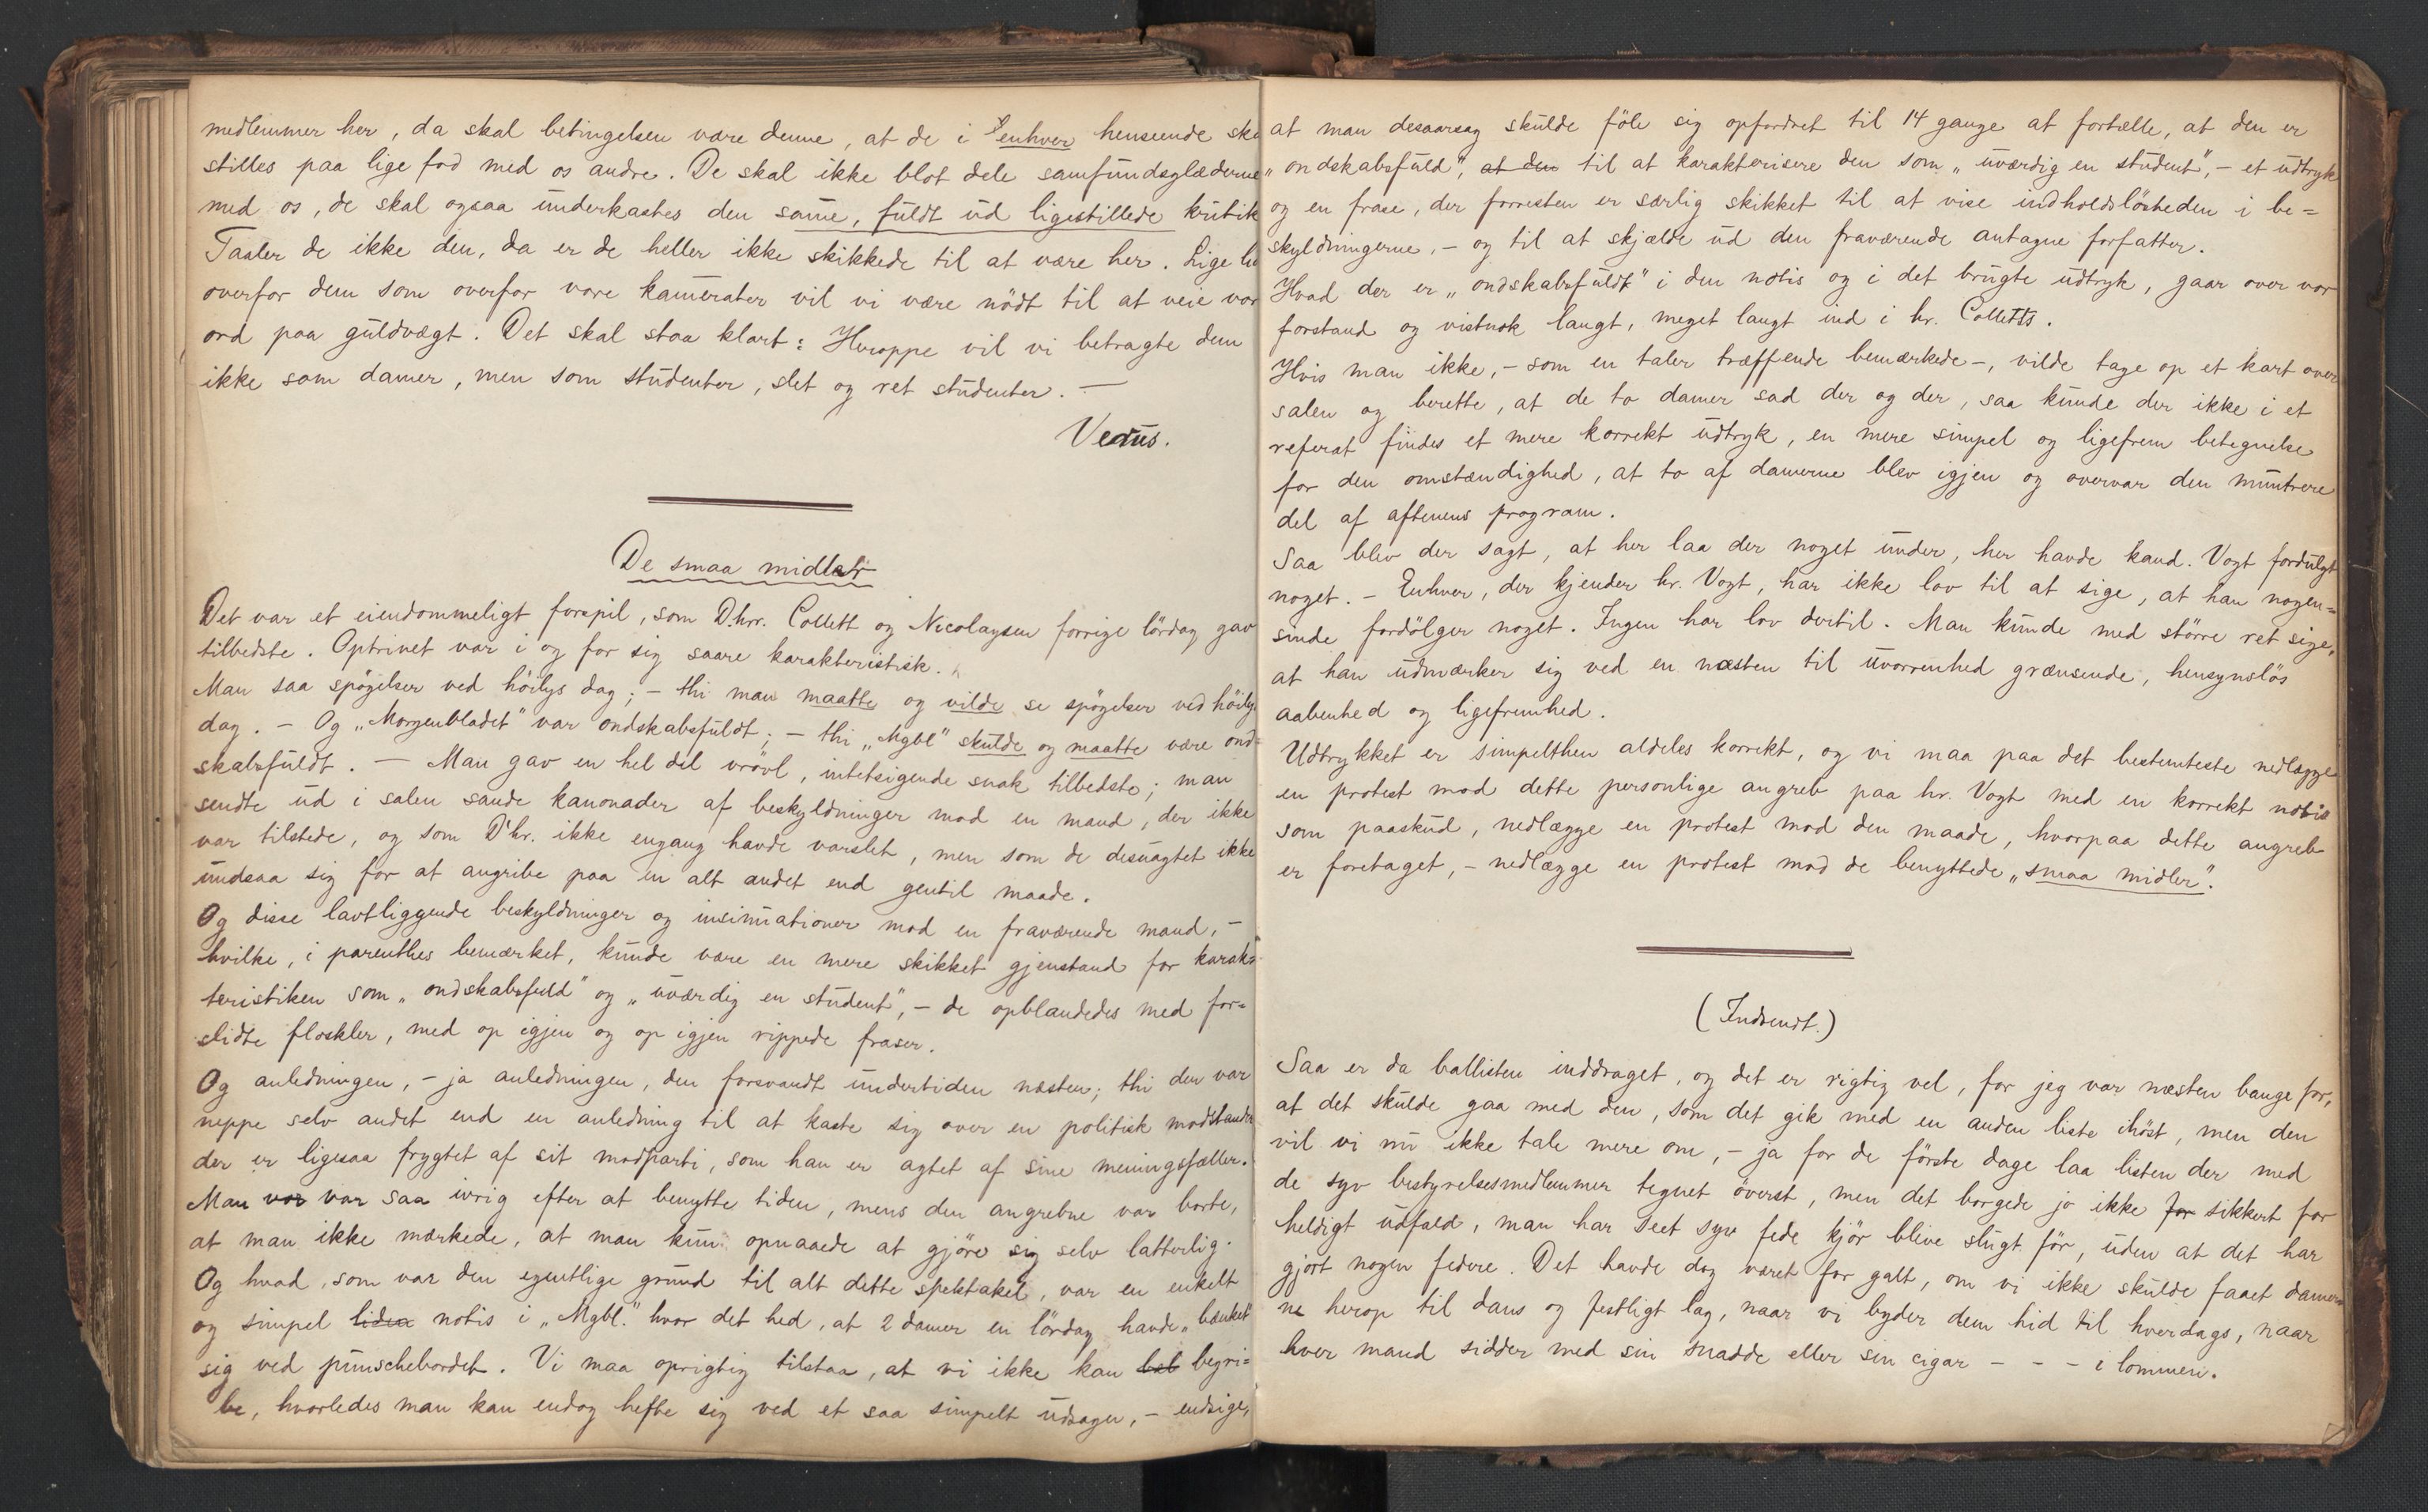 medlemmer her, da skal betingelsen være denne, at de i enhver henseende ska
stilles paa lige fod med os andre. De skal ikke blot dele samfundsglæderne
med os, de skal ogsaa underkastes den same, fuldt ud ligestillede kritik
Taaler de ikke den, da er de heller ikke skikkede til at være her. Lige
overfor dem som overfor vore kamerater vil vi være nödt til at veie vor
ord paa guldvægt. Det skal staa klart: Heroppe vil vi betragte dem
ikke som damer, men som studenter, slet og ret studenter. —
Verus.
De smaa midler
Det var et eiendommeligt forspil, som D.hrr. Collett og Nicolaysen forrige lördag gav
tilbedste. Optrinet var i og for sig saare karakteristisk.
Man saa spögelser ved höilys dag; – thi man maatte og vilde se spögelser ved höilys
dag. – Og „Morgenbladet" var ondskabsfuldt; – thi „Mgbl" skulde og maatte være ond=
skabsfuldt. — Man gav en hel del vrövl, intetsigende snak tilbedste; man
sendte ud i salen sande kanonader af beskyldninger mod en mand, der ikke
var tilstede, og som D'hr. ikke engang havde varslet, men som de desuagtet ikke
undsaa sig for at angribe paa en alt andet end gentil maade.
Og disse lavtliggende beskyldninger og insinuationer mod en fraværende mand, –
hvilke, i parenthes bemærket, kunde være en mere skikket gjenstand for karak=
teristiken som „ondskabsfuld" og „uværdig en student", – de opblandedes med for=
slidte floskler, med op igjen og op igjen rippede fraser.
Og anledningen, – ja anledningen, den forsvandt undertiden næsten; thi den var
neppe selv andet end en anledning til at kaste sig over en politisk modstander
der er ligesaa frygtet af sit modparti, som han er agtet af sine meningsfæller.
Man var var saa ivrig efter at benytte tiden, mens den angrebne var borte,
at man ikke mærkede, at man kun opnaaede at gjöre sig selv latterlig.
Og hvad, som var den egentlige grund til alt dette spektakel, var en enkelt
og simpel liden notis i „Mgbl." hvor det hed, at 2 damer en lördag havde „bænket"
sig ved punschebordet. Vi maa oprigtig tilstaa, at vi ikke kan beb begri=
be, hvorledes man kan endog hefte sig ved et saa simpelt udsagn, – endsige,
at man desaarsag skulde föle sig opfordret til 14 gange at fortælle, at den er
„ondskabsfuld", at den til at karakterisere den som „uværdig en student", – et udtryk
og en frase, der forresten er særlig skikket til at vise indholdslösheden i be=
skyldningerne, – og til at skjælde ud den fraværende antagne forfatter.
Hvad der er „ondskabsfuldt" i den notis og i det brugte udtryk, gaar over vor
forstand og vistnok langt, meget langt ind i hr. Colletts.
Hvis man ikke, – som en taler træffende bemærkede –, vilde tage op et kart over
salen og berette, at de to damer sad der og der, saa kunde der ikke i et
referat findes et mere korrekt udtryk, en mere simpel og ligefrem betegnelse
for den omstændighed, at to af damerne blev igjen og overvar den muntrere
del af aftenens program.
Saa blev der sagt, at her laa der noget under, her havde kand. Vogt fordulgt
noget. – Enhver, der kjender hr. Vogt, har ikke lov til at sige, at han nogen=
sinde fordölger noget. Ingen har lov dertil. Man kunde med större ret sige,
at han udmærker sig ved en næsten til uvorrenhed grænsende, hensynslös
aabenhed og ligefremhed.
Udtrykket er simpelthen aldeles korrekt, og vi maa paa det bestemteste nedlægge
en protest mod dette personlige angreb paa hr. Vogt med en korrekt notis
som paaskud, nedlægge en protest mod den maade, hvorpaa dette angreb
er foretaget, – nedlægge en protest mod de benyttede „smaa midler".
(Indsendt.)
Saa er da ballisten inddraget, og det er rigtig vel, for jeg var næsten bange for,
at det skulde gaa med den, som det gik med en anden liste ihöst, men den
vil vi nu ikke tale mere om, – ja for de förste dage laa listen der med
de syv bestyrelsesmedlemmer tegnet överst, men det borgede jo ikke for sikkert for
heldigt udfald, man har seet syv fede kjör blive slugt för, uden at det har
gjort nogen federe. Det havde dog været for galt, om vi ikke skulde faaet damer
ne herop til dans og festligt lag, naar vi byder dem hid til hverdags, naar
hver mand sidder med sin snadde eller sin cigar – – – i lommen.